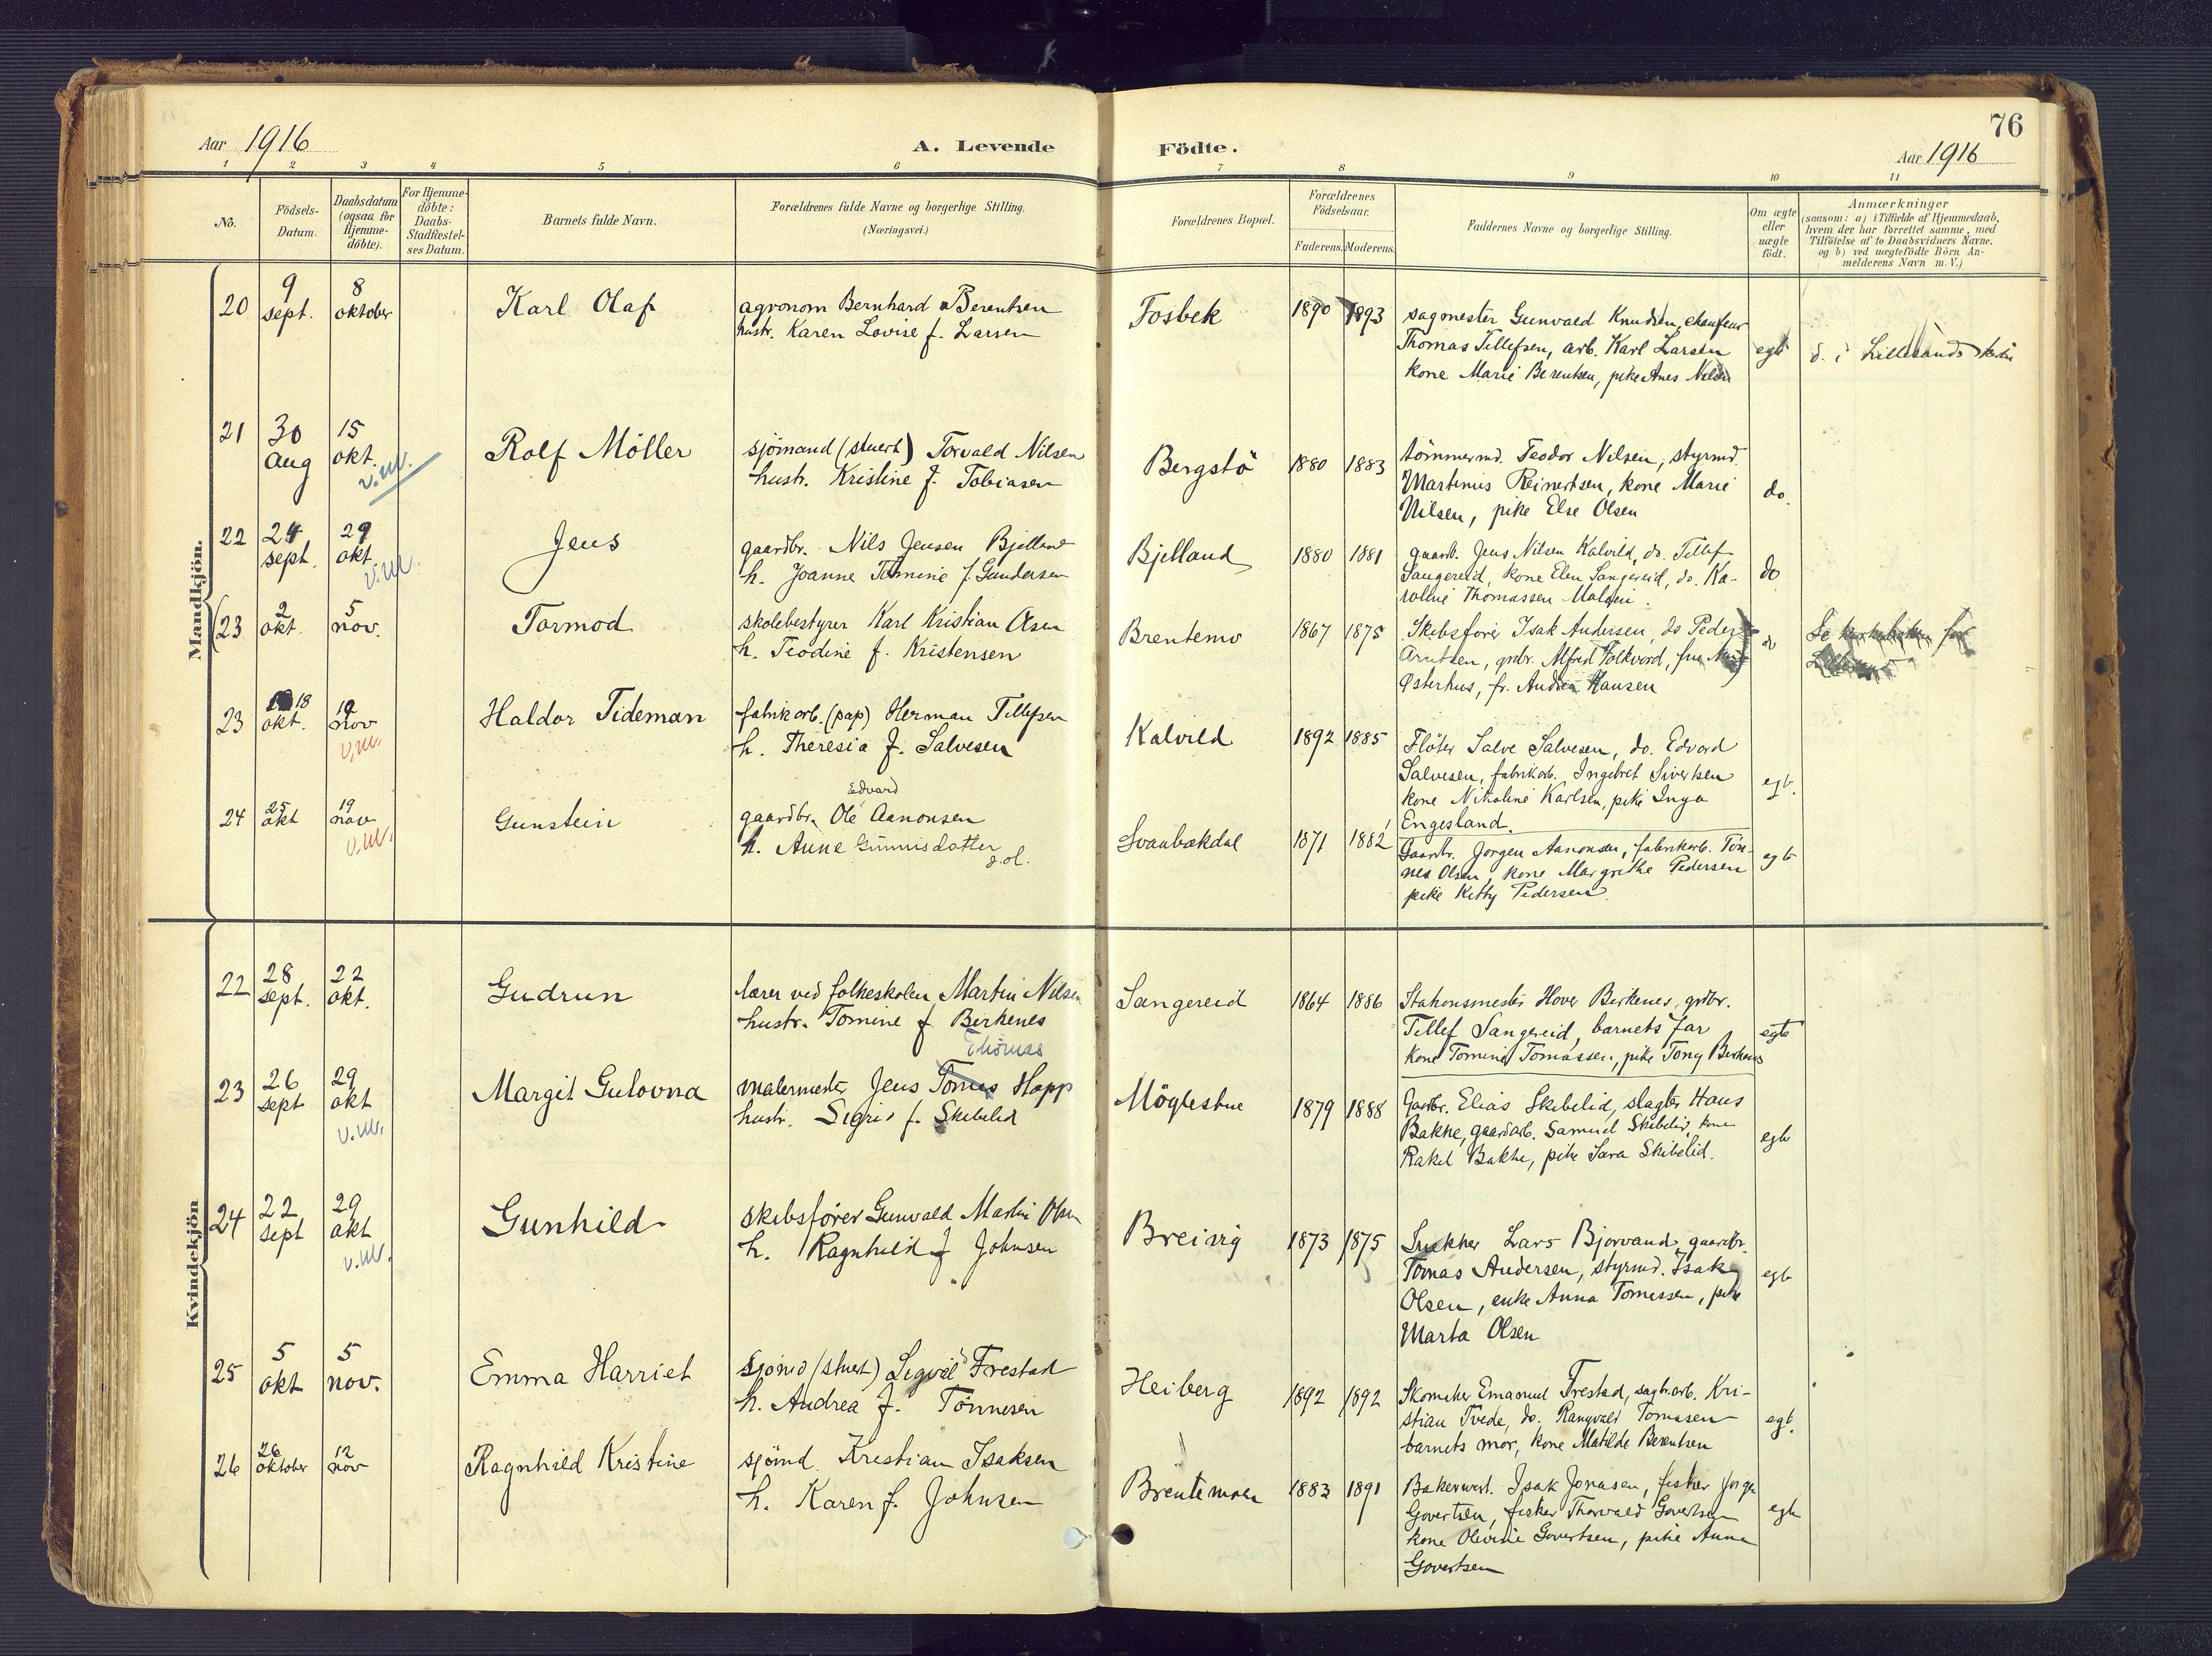 76
Aar 1916
A. Levende Födte.
Aar 1916
1 2 3 4 5 6 7 8 9 10 11
No.
Födsels-
Datum.
Daabsdatum
(ogsaa for
Hjemme-
döbte).
For Hjemme-
döbte:
Daabs-
Stadfæstel-
ses Datum.
Barnets fulde Navn.
Forældrenes fulde Navne og borgerlige Stilling.
(Næringsvei.)
Forældrenes Bopæl.
Forældrenes
Födselsaar.
Faderens. Moderens.
Faddernes Navne og borgerlige Stilling.
Om ægte
eller
uægte
födt.
Anmærkninger
(saasom: a) i Tilfælde af Hjemmedaab,
hvem der har forrettet samme, med
Tilföielse af to Daabsvidners Navne,
og b) ved uægtefödte Börn An-
melderens Navn m. V.)
Mandkjön.
20
9
sept.
8
oktober
Karl Olaf
agronom Bernhard Berentsen
hustr. Karen Lovise f. Larsen
Fosbek
1890 1893
sagmester Gunvald Knudsen, chaufeur
Thomas Tellefsen, arb. Karl Larsen
kone Marie Berentsen, pike Anes Nelsen
egte
d. i Lillesands kirke
21
30
aug
15
okt.
v.m.
Rolf Möller
sjömand (stuert) Torvald Nilsen
hustr. Kristine f. Tobiasen
Bergstö
1880 1883
tömmermd. Teodor Nilsen, styrmd.
Martinus Reinertsen, kone Marie
Nilsen, pike Else Olsen
do.
22
24
sept.
29
okt.
v.m.
Jens
gaardbr. Nils Jensen Bjelland
h. Joanne Tomine f. Gundersen
Bjelland
1880 1881
gaardb. Jens Nilsen Kalvild, do. Tellef
Sangereid, kone Elen Sangereid, do. Ka-
roline Thomassen
do
23
2
okt.
5
nov.
Tormod
skolebestyrer Karl Kristian Olsen
h. Teodine f. Kristensen
Brentemo
1867 1875
Skibsförer Isak Andersen, do Peder
Arntsen, grdbr. Alfred Folkvord, fru
Østerhus, fr. Andrea Hansen
do
Se kirkeboken for
23
18
okt.
19
nov
v.m.
Haldor Tideman
fabrikarb. (pap) Herman Tellefsen
h. Theresia f. Salvesen
Kalvild
1892 1885
Flöter Salve Salvesen, do. Edvard
Salvesen, fabrikarb. Ingebret Sivertsen
kone Nikoline Karlsen, pike Inga
Engesland.
egt.
24
25
okt
19
nov
v.m.
Gunstein
Edvard
gaardbr. Ole Aanonsen
h. Anne Gunnisdatter
g.ol.
Svanbækdal
1871 1882
Gaardbr. Jörgen Aanonsen, fabrikarb. Tön-
nes Olsen, kone Margrethe Pedersen
pike Kitty Pedersen.
egt
Kvindekjön
22
28
sept.
22
okt.
Gudrun
lærer ved folkeskolen Martin Nilsen
hustr. Tomine f. Birkenes
Sangereid
1864 1886
Stationsmester Hover Birkenes, grdbr.
Tellef Sangereid, barnets far
kone Tomine Tomassen, pike Tony Birkenes
egte
23
26
sept
29
okt
v.m.
Margit Gulovna
Thomas
malermester Jens Tomas Hopp
hustr. Sigrid f. Skibelid
Möglestue
1879 1888
Gardbr. Elias Skibelid, slagter Hans
Bakke, gaardarb. Samuel Skibelid, kone
Rakel Bakke, pike Sara Skibelid.
egte
24
22
sept
29
okt
v.m.
Gunhild
skibsförer Gunvald Martin Olsen
h. Ragnhild f Johnsen
Breivig
1873 1875
Snekker Lars Bjorvand, gaardbr.
Tomas Andersen, styrmd. Isak
Olsen, enke Anna Tomessen, pike
Marta Olsen
egt
25
5
okt
5
nov.
Emma Harriet
Sjömd (stuert) Sigvald Frestad
h. Andrea f. Tönnesen
Heiberg
1892 1892
Skomaker Emanuel Frestad, sagbr.arb. Kri-
stian Tvede, do. Rangvald Tomasen
barnets mor, kone Matilde Berentsen
egt.
26
26
oktober
12
nov
Ragnhild Kristine
sjömd. Kristian Isaksen
h. Karen f. Johnsen
Brentemoen
1883 1891
Bakermest. Isak Jonasen, fisker Jörgen
Govertsen, fisker Thorvald Govertsen
kone Olevine Govertsen, pike Anna
Govertsen
egte